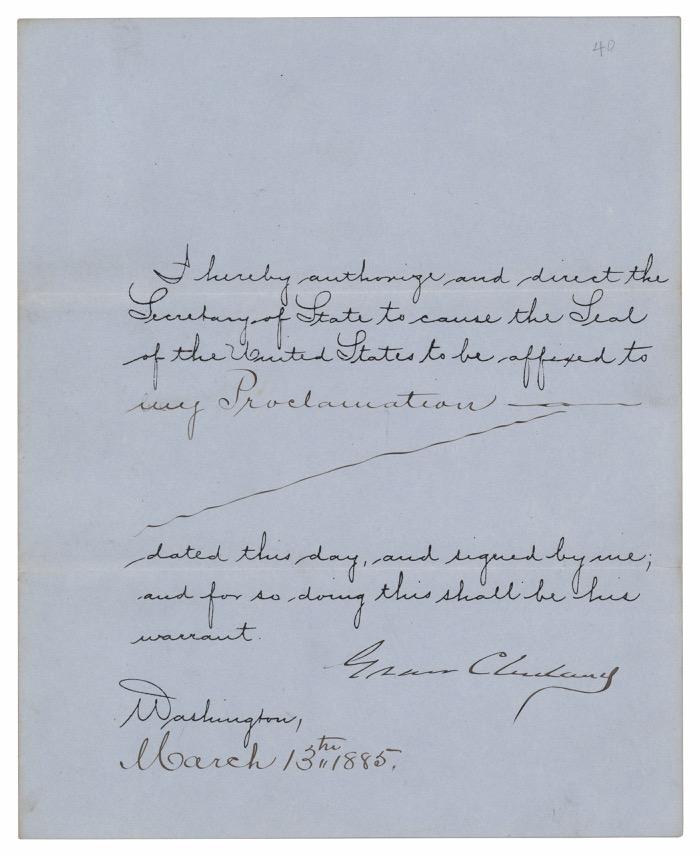 40
I hereby authorize and direct the
Secretary of State to cause the Seal
of the United States to be affixed to
my Proclamation
dated this day, and signed by me;
and for so doing this shall be his
warrant.
Grover Cleveland
Washington,
March 13th 1885.